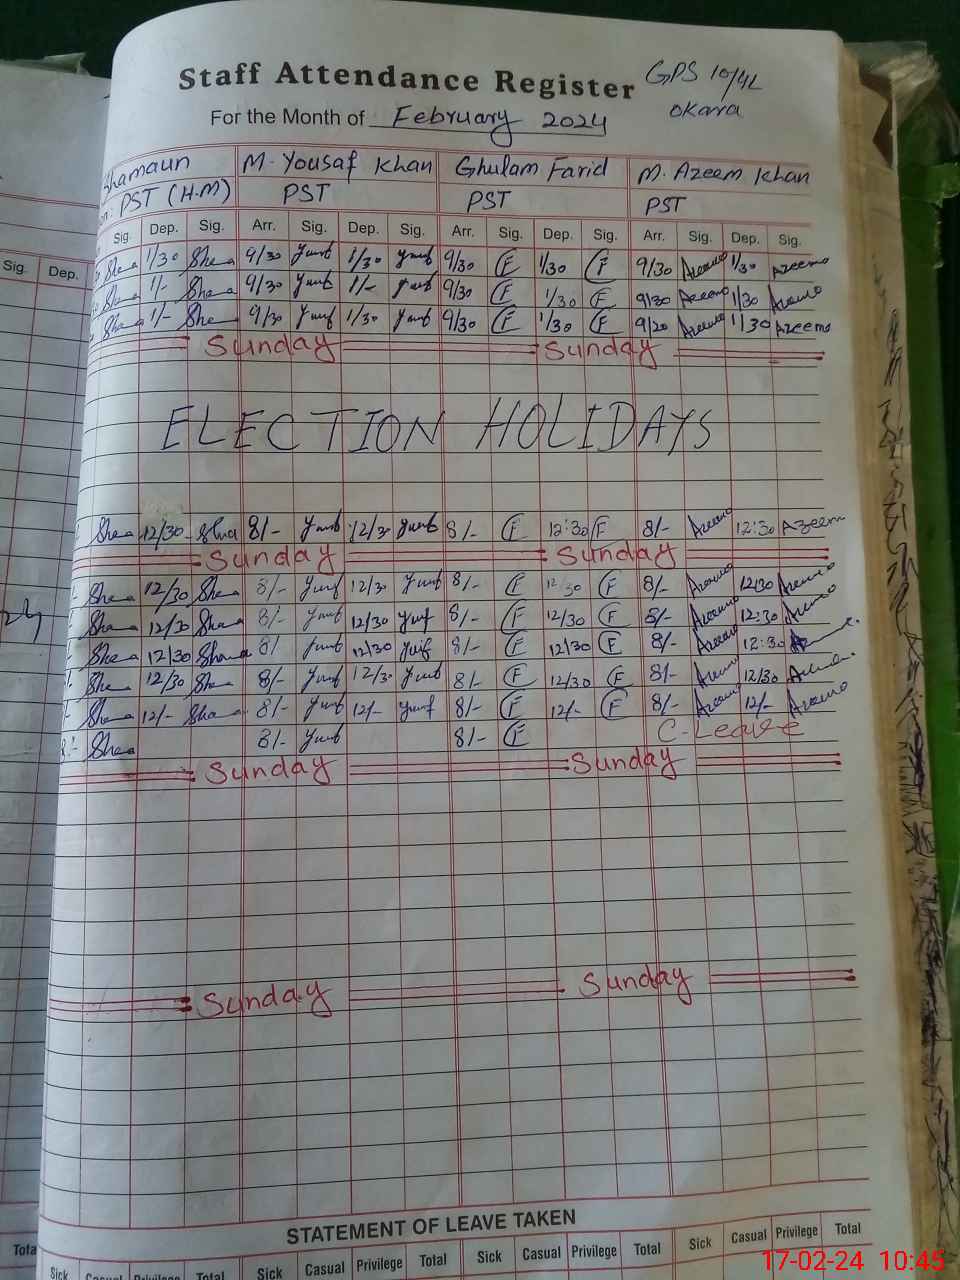 Staff Attendance Register GPS 10/4L
For the Month of February 2024 Okara
Shamaun M. Yousaf Khan Ghulam Farid M. Azeem Khan
PST (H.M) PST PST PST
Sig. Dep. Sig. Arr. Sig. Dep. Sig. Arr. Sig. Dep. Sig. Arr. Sig. Dep. Sig.
Sig. Dep.
Sha 1/30 Sha 9/30 1/30 9/30 F 1/30 F 9/30 Azeem 1/30 Azeem
Sha 1/- Sha 9/30 1/- 9/30 F 1/30 F 9/30 Azeem 1/30 Azeem
Sha 1/- Sha 9/30 1/30 9/30 F 1/30 F 9/20 Azeem 1/30 Azeem
Sunday Sunday
ELECTION HOLIDAYS
Sha 12/30 Sha 8/- 12/30 8/- F 12:30 F 8/- Azeem 12:30 Azeem
Sunday Sunday
Sha 12/30 Sha 8/- 12/30 8/- F 12/30 F 8/- Azeem 12:30 Azeem
Sha 12/30 Sha 8/- 12/30 8/- F 12/30 F 8/- Azeem 12:30 Azeem
Sha 12/30 Sha 8/ 12/30 8/- F 12/30 F 8/- Azeem 12:30
Sha 12/30 Sha 8/- 12/30 8/- F 12/30 F 8/- Azeem 12/30 Azeem
Sha 12/- Sha 8/- 12/- 8/- F 12/- F 8/- Azeem 12/- Azeem
8/- Sha 8/- 8/- F C-Leave
Sunday Sunday
Sunday Sunday
STATEMENT OF LEAVE TAKEN
Total Sick Casual Privilege Total Sick Casual Privilege Total Sick Casual Privilege Total Sick Casual Privilege Total
17-02-24 10:45